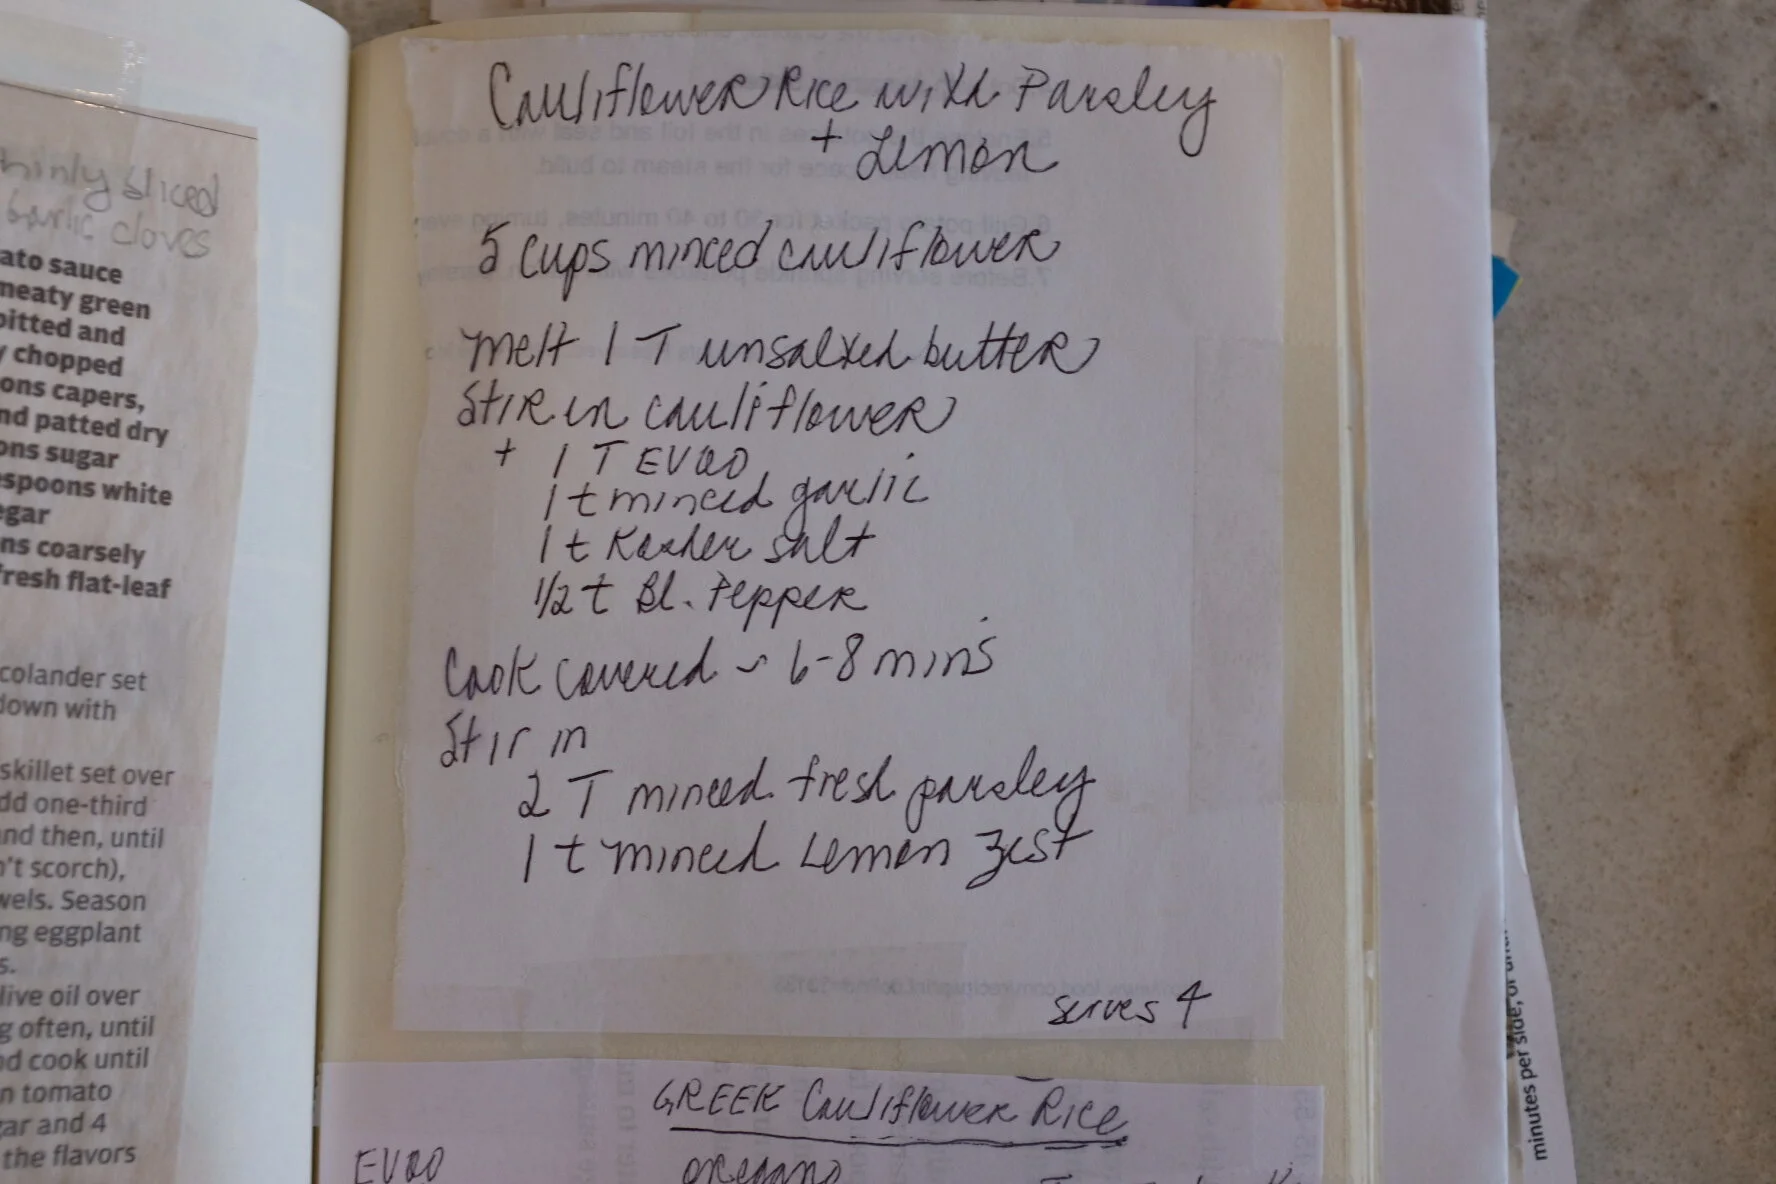 thinly sliced
garlic cloves
ato sauce
meaty green
pitted and
y chopped
ons capers,
nd patted dry
ons sugar
spoons white
egar
ns coarsely
fresh flat-leaf
colander set
down with
skillet set over
dd one-third
nd then, until
n't scorch),
wels. Season
ng eggplant
s.
live oil over
g often, until
nd cook until
n tomato
gar and 4
the flavors
Cauliflower Rice with Parsley
+ Lemon
5 cups minced cauliflower
melt 1 T unsalted butter
Stir in cauliflower
+ 1 T EVOO
1 t minced garlic
1 t Kosher salt
1/2 t Bl. Pepper
Cook covered ~ 6-8 mins
Stir in
2 T minced fresh parsley
1 t minced Lemon Zest
serves 4
GREEK Cauliflower Rice
EVOO oregano
minutes per side, or until